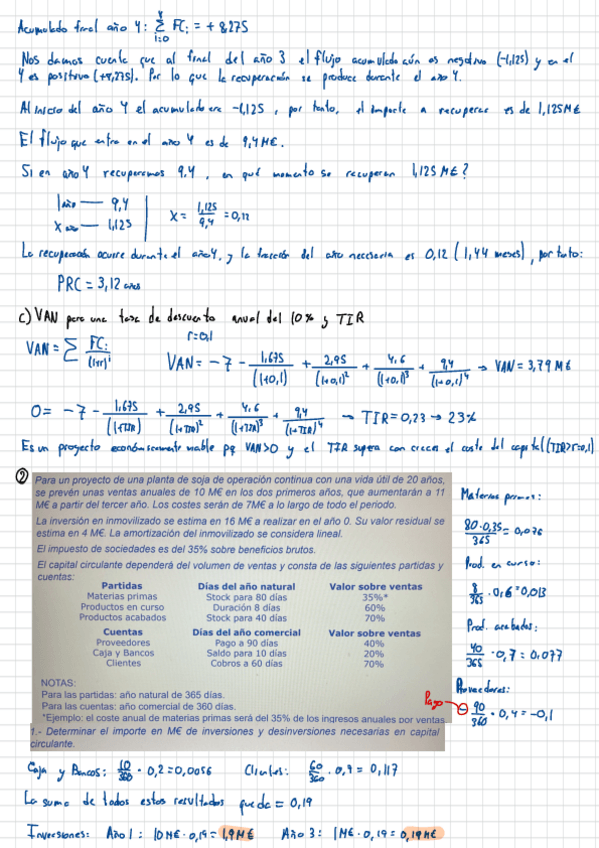 Acumulado final año 4: Σ FCi = + 8,275
4
i=0
Nos damos cuenta que al final del año 3 el flujo acumulado aún es negativo (-1,125) y en el
4 es positivo (+8,275). Por lo que la recuperación se produce durante el año 4.
Al inicio del año 4 el acumulado era -1,125, por tanto, el importe a recuperar es de 1,125 M€
El flujo que entra en el año 4 es de 9,4 M€.
Si en año 4 recuperamos 9,4, en qué momento se recuperan 1,125 M€?
1 año — 9,4
X año — 1,125
X = 1,125/9,4 = 0,12
La recuperación ocurre durante el año 4, y la fracción del año necesaria es 0,12 (1,44 meses), por tanto:
PRC = 3,12 años
c) VAN para una tasa de descuento anual del 10% y TIR
r=0,1
VAN = Σ FCi/(1+r)^i
VAN = -7 - 1,675/(1+0,1) + 2,95/(1+0,1)² + 4,6/(1+0,1)³ + 9,4/(1+0,1)⁴ → VAN = 3,79 M€
0 = -7 - 1,675/(1+TIR) + 2,95/(1+TIR)² + 4,6/(1+TIR)³ + 9,4/(1+TIR)⁴ → TIR = 0,23 → 23%
Es un proyecto económicamente viable pq VAN>0 y el TIR supera con creces el coste del capital (TIR>r=0,1)
②
Para un proyecto de una planta de soja de operación continua con una vida útil de 20 años,
se prevén unas ventas anuales de 10 M€ en los dos primeros años, que aumentarán a 11
M€ a partir del tercer año. Los costes serán de 7M€ a lo largo de todo el periodo.
La inversión en inmovilizado se estima en 16 M€ a realizar en el año 0. Su valor residual se
estima en 4 M€. La amortización del inmovilizado se considera lineal.
El impuesto de sociedades es del 35% sobre beneficios brutos.
El capital circulante dependerá del volumen de ventas y consta de las siguientes partidas y
cuentas:
Partidas Días del año natural Valor sobre ventas
Materias primas Stock para 80 días 35%*
Productos en curso Duración 8 días 60%
Productos acabados Stock para 40 días 70%
Cuentas Días del año comercial Valor sobre ventas
Proveedores Pago a 90 días 40%
Caja y Bancos Saldo para 10 días 20%
Clientes Cobros a 60 días 70%
NOTAS:
Para las partidas: año natural de 365 días.
Para las cuentas: año comercial de 360 días.
*Ejemplo: el coste anual de materias primas será del 35% de los ingresos anuales por ventas
1.- Determinar el importe en M€ de inversiones y desinversiones necesarias en capital
circulante.
Materias primas:
80·0,35/365 = 0,076
Prod. en curso:
8/365 · 0,6 = 0,013
Prod. acabados:
40/365 · 0,7 = 0,077
Proveedores:
Pago
- 90/360 · 0,4 = -0,1
Caja y Bancos: 10/360 · 0,2 = 0,0056 Clientes: 60/360 · 0,7 = 0,117
La suma de todos estos resultados queda = 0,19
Inversiones: Año 1: 10 M€ · 0,19 = 1,9 M€ Año 3: 1 M€ · 0,19 = 0,19 M€